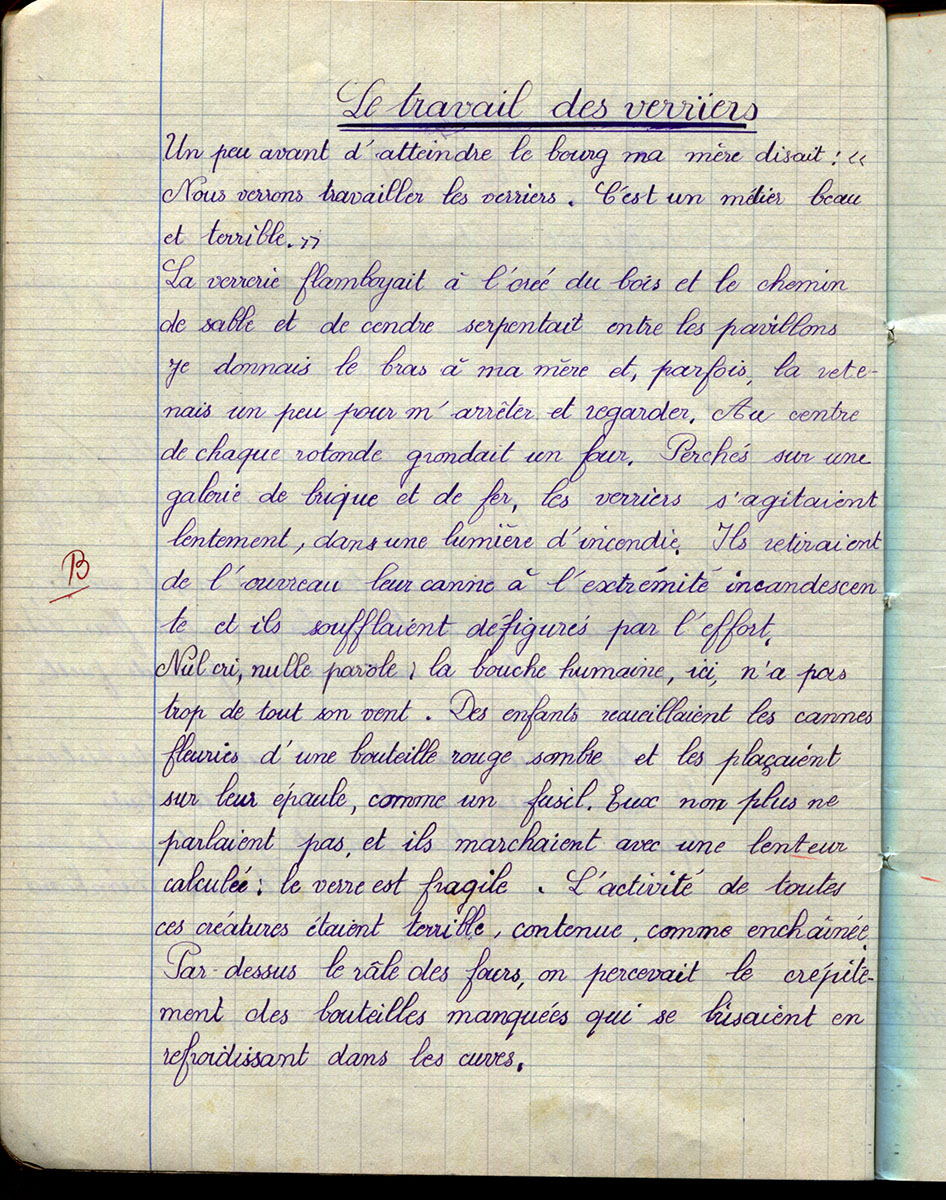 Le travail des verriers
Un peu avant d'atteindre le bourg ma mère disait : «
Nous verrons travailler les verriers. C'est un métier beau
et terrible. »
La verrerie flamboyait à l'orée du bois et le chemin
de sable et de cendre serpentait entre les pavillons
Je donnais le bras à ma mère et, parfois, la rete-
nais un peu pour m'arrêter et regarder. Au centre
de chaque rotonde grondait un four. Perchés sur une
galerie de brique et de fer, les verriers s'agitaient
lentement, dans une lumière d'incendie. Ils retiraient
de l'ouvreau leur canne à l'extrémité incandescen
te et ils soufflaient défigurés par l'effort.
Nul cri, nulle parole ; la bouche humaine, ici, n'a pas
trop de tout son vent. Des enfants recueillaient les cannes
fleuries d'une bouteille rouge sombre et les plaçaient
sur leur épaule, comme un fusil. Eux non plus ne
parlaient pas, et ils marchaient avec une lenteur
calculée : le verre est fragile. L'activité de toutes
ces créatures étaient terrible, contenue, comme enchaînée.
Par-dessus le râle des fours, on percevait le crépite-
ment des bouteilles manquées qui se brisaient en
refroidissant dans les cuves.
B